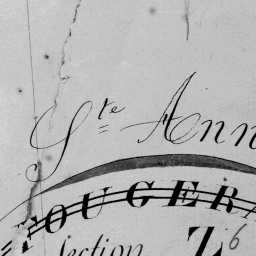 Ste Ann
FOUGERA
Section Z 6